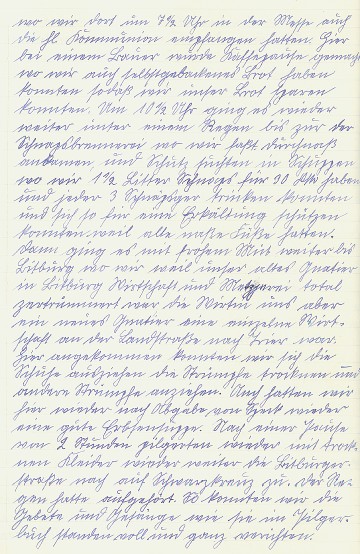 wo wir dort um 7½ Uhr in der Messe auch
die hl Kommunion empfangen hatten. Hier
bei einem Bauer wurde Kaffepause gemacht
wo wir auch selbstgebackenes Brot haben
konnten sodaß wir unser Brot sparen
konnten. Um 10½ Uhr ging es wieder
weiter unter einem Regen bis zur der
Schnapsbrennerei wo wir fast durchnaß
ankamen und Schutz suchten in Schuppen
wo wir 1½ Litter Schnaps für 30 Mk haben
und jeder 3 Schnäpser trinken konnten
und sich so für eine Erkältung schützen
konnten weil alle naße Füße hatten.
Dann ging es mit frohem Mut weiter bis
Bitburg wo wir weil unser altes Quatier
in Bitburg Wirtschaft und Metzgerei total
zertrümmert war die Wirtin uns aber
ein neues Quatier eine einzelne Wirt-
schaft an der Landstraße nach Trier war.
Hier angekommen konnten wir sich die
Schuhe ausziehen die Strümpfe trocknen und
andere Strümpfe anziehen. Auch hatten wir
hier wieder nach Abgabe von Speck wieder
eine gute Erbsensuppe. Nach einer Pause
von 2 Stunden pilgerten wieder mit trock-
nen Kleider wieder weiter die Bitburger-
straße nach auf Schwarzkreuz zu. Der Re-
gen hatte aufgehört. So konnten wir die
Gebete und Gesänge wie sie im Pilger-
buch standen voll und ganz verrichten.